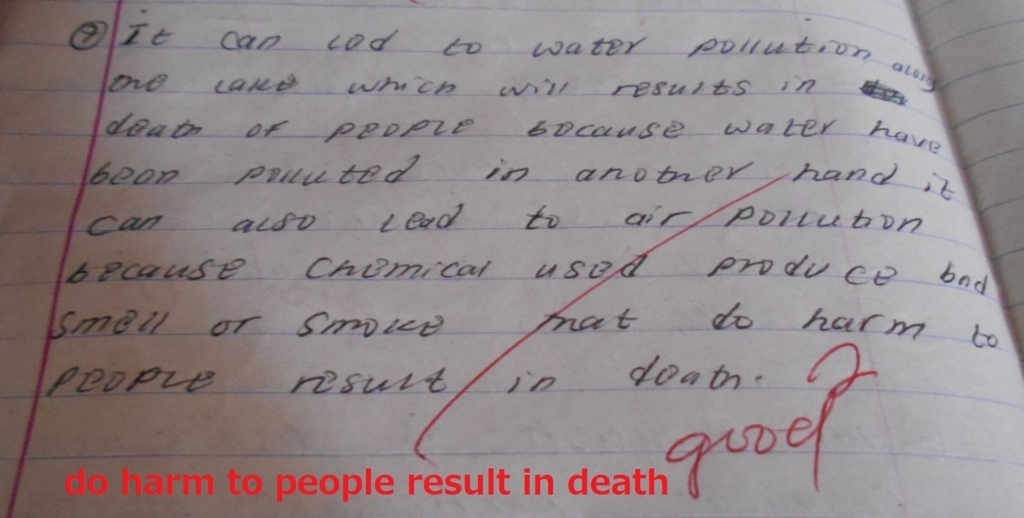 ② It can lod to water pollution along
the lake which will results in
death of people because water have
been polluted in another hand it
can also lead to air pollution
because chemical used produce bad
smell or smoke that do harm to
people result in death. 2
good
do harm to people result in death